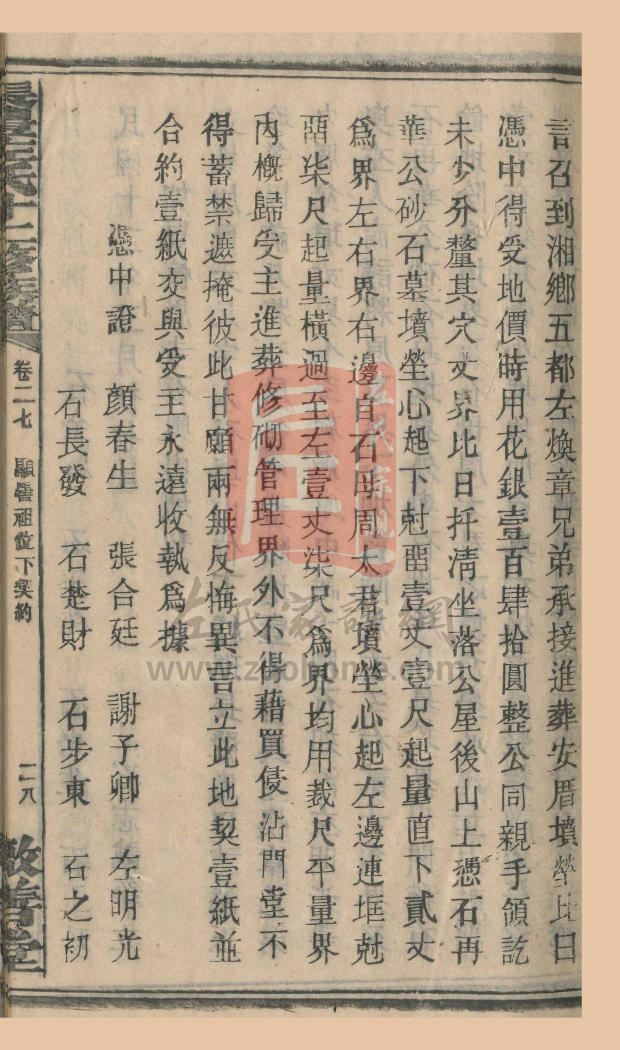 言召到湘鄉五都左煥章兄弟承接進葬安厝墳塋比日
憑中得受地價時用花銀壹百肆拾圓整公同親手領訖
未少分釐其穴丈界比日扦清坐落公屋後山上憑石再
華公砂石墓墳塋心起下尅畱壹丈壹尺起量直下貳丈
爲界左右界右邊自石母周太君墳塋心起左邊連堆尅
畱柒尺起量橫過至左壹丈柒尺爲界均用裁尺平量界
內概歸受主進葬修砌管理界外不得藉買侵沾門堂不
得蓄禁遮掩彼此甘願兩無反悔異言立此地契壹紙並
合約壹紙交與受主永遠收執爲據
憑中證 顏春生 張合廷 謝子卿 左明光
石長發 石楚財 石步東 石之初
左氏十二修族譜
卷二七 顯 祖 下契約
二八
敦善堂
左氏家譜網
www.zuohome.com